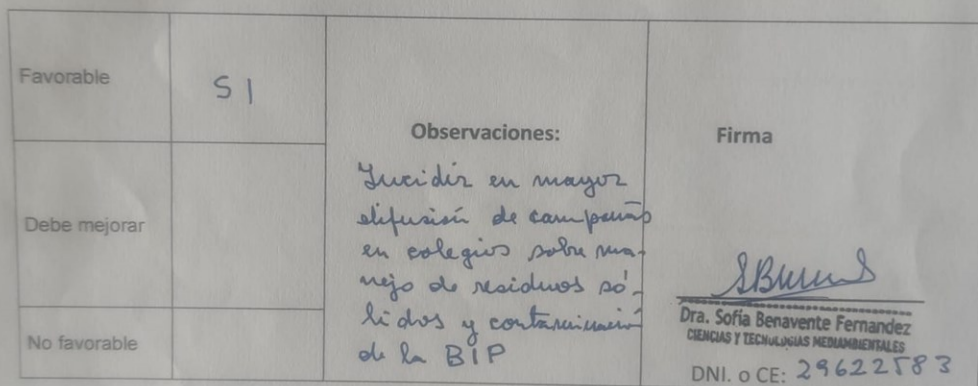 Favorable
SI
Debe mejorar
No favorable
Observaciones:
Incidir en mayor
difusión de campañas
en colegios sobre ma-
nejo de residuos só-
lidos y contaminación
de la BIP
Firma
Dra. Sofía Benavente Fernandez
CIENCIAS Y TECNOLOGIAS MEDIAMBIENTALES
DNI. o CE: 29622583